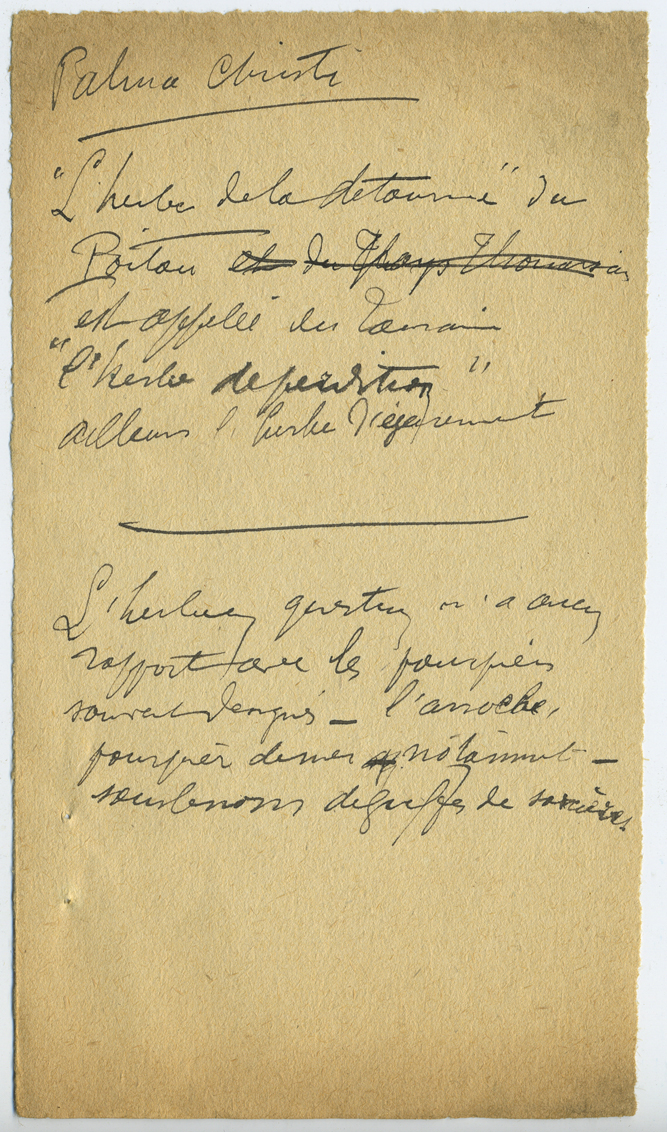 Palma Christi
"L'herbe de la détourne" du
Poitou et du Pays Thouarsais
est appelée en Touraine
"l'herbe de perdition"
ailleurs l'herbe d'égarement
L'herbe en question n'a aucun
rapport avec les pourpiers
souvent désignés _ l'arroche,
pourpier de mer notamment _
sous le nom de griffes de sorcières